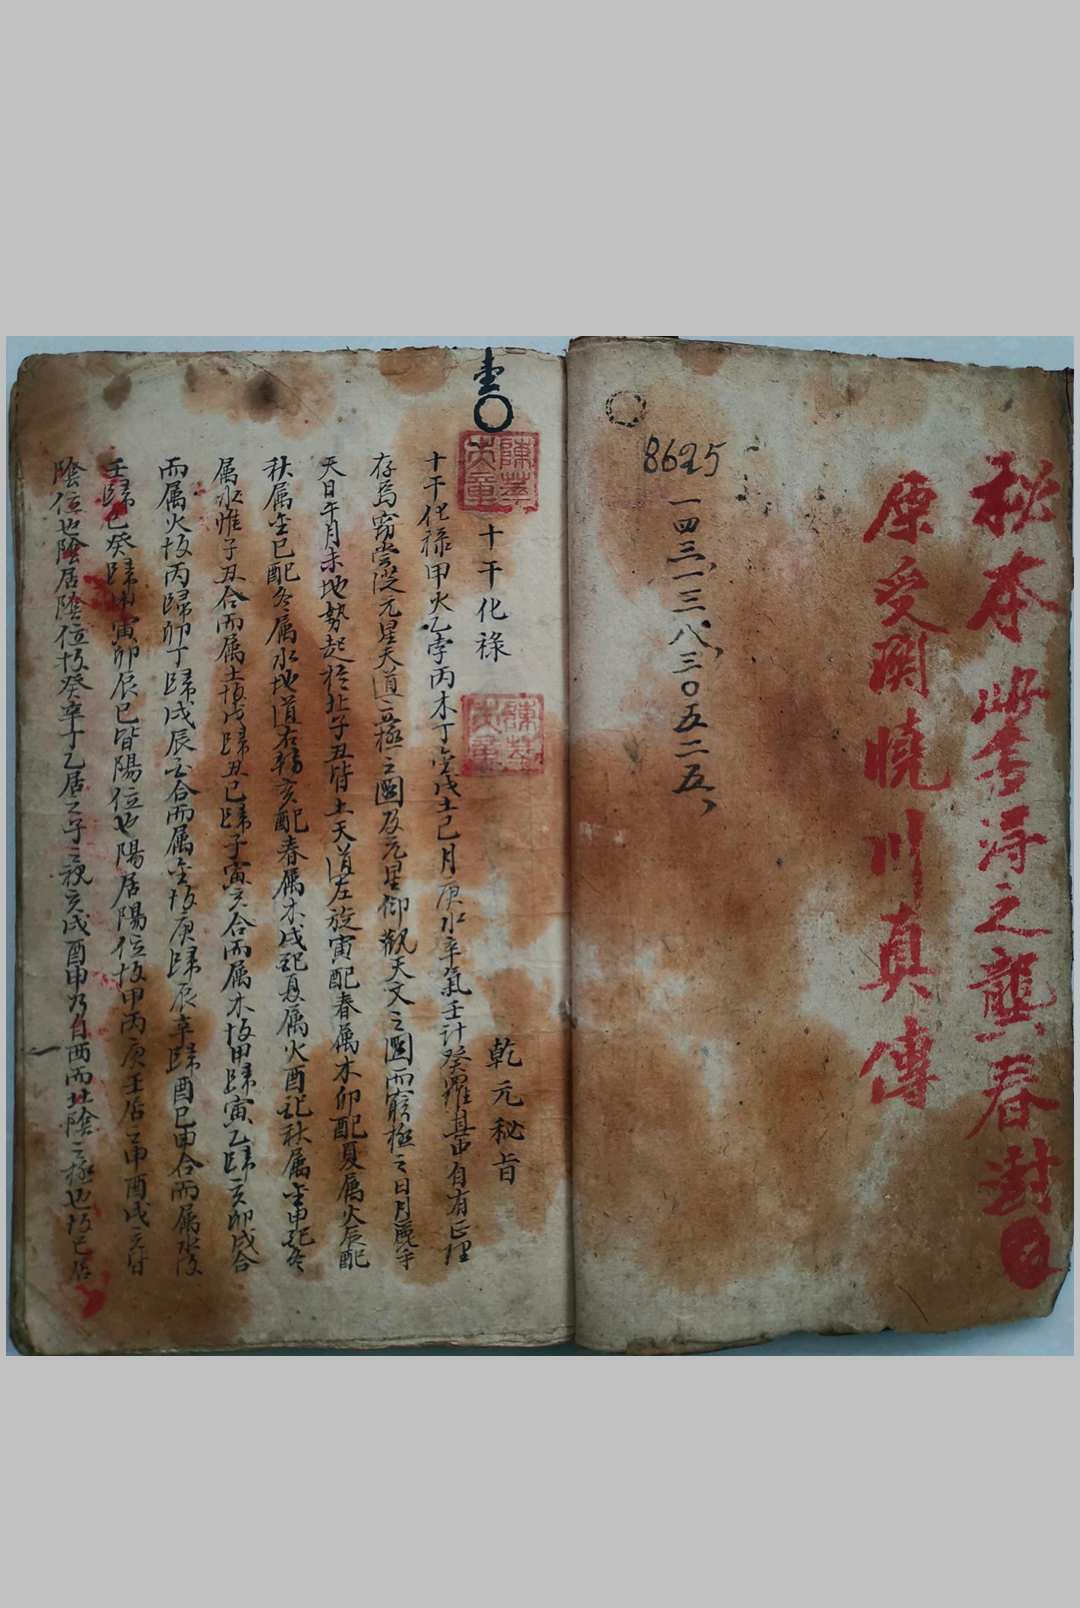 秘本此書得之龔春對
原受關曉川真傳
8625
一四三、一三八、三〇五二五、
十干化祿
乾元秘旨
十干化祿甲火乙孛丙木丁金戊土己月庚水辛氣壬計癸羅其中自有正理
存焉竊嘗從元星天道立極之圖及元星仰觀天文之圖而窮極之日月麗乎
天日午月未地勢起於北子丑皆土天道左旋寅配春属木卯配夏属火辰配
秋属金巳配冬属水地道右轉亥配春属木戌配夏属火酉配秋属金申配冬
属水惟子丑合而属土故戊歸丑己歸子寅亥合而属木故甲歸寅乙歸亥卯戌合
而属火故丙歸卯丁歸戌辰酉合而属金故庚歸辰辛歸酉巳申合而属水故
壬歸巳癸歸申寅卯辰巳皆陽位也陽居陽位故甲丙庚壬居之申酉戌亥皆
陰位也陰居陰位故癸辛丁乙居之子之視亥戌酉申乃自西而北陰之極也故己居